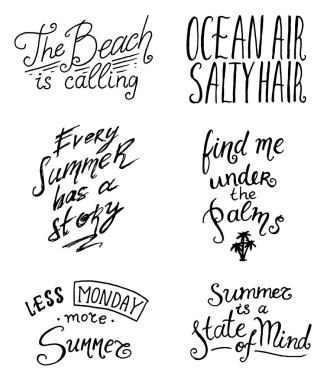 The Beach
is calling
OCEAN AIR
SALTY HAIR
Every
Summer
has a
story
find me
under
the
Palms
LESS MONDAY
· more ·
Summer
Summer
is a
State
of Mind